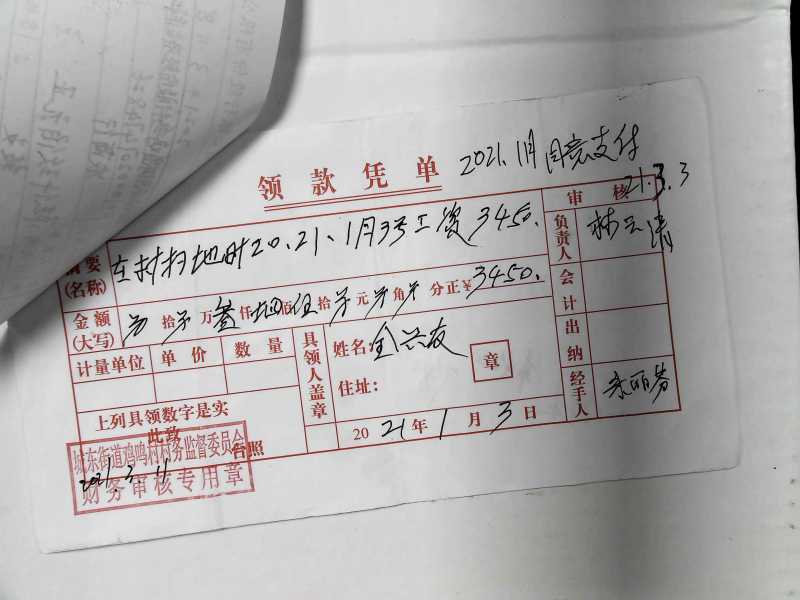 领款凭单
2021.1月 同意支付
21.3.3
审核
摘要(名称) 在村扫地时20.21.1月3号工资3450.
负责人
金额(大写) 拾 万叁仟 佰伍拾 元 角 分正¥3450.
会计
计量单位 单价 数量
具领人盖章
姓名:
章
住址:
出纳
经手人
上列具领数字是实
此致
台照
2021年1月3日
城东街道鸡鸣村村务监督委员会
2021.3.11
财务审核专用章